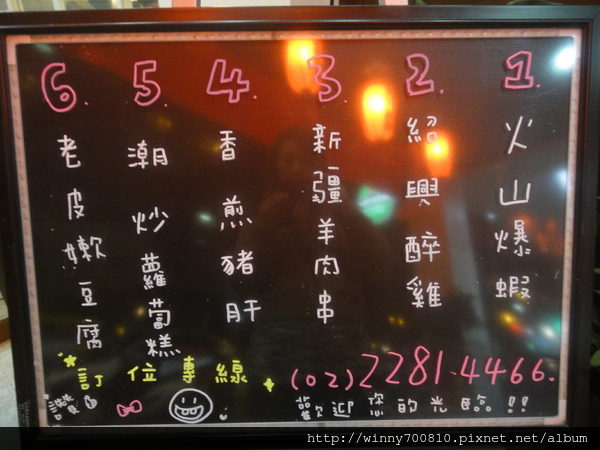 1. 火山爆蝦
2. 紹興醉雞
3. 新疆羊肉串
4. 香煎豬肝
5. 潮炒蘿蔔糕
6. 老皮嫩豆腐
訂位專線 (02)2281-4466.
歡迎您的光臨!!
http://winny700810.pixnet.net/album